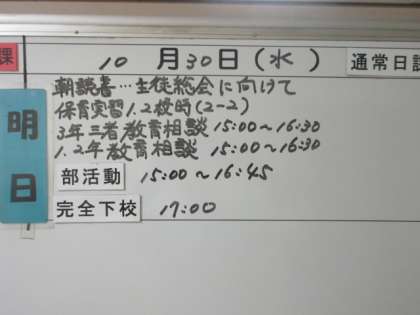 課
10月30日(水) 通常日課
明日
朝読書…生徒総会に向けて
保育実習1.2校時(2-2)
3年三者教育相談 15:00~16:30
1.2年教育相談 15:00~16:30
部活動 15:00~16:45
完全下校 17:00